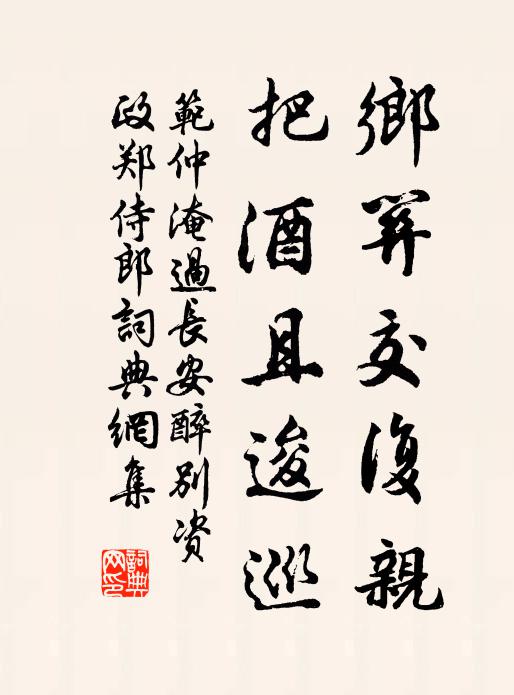 鄉關交復親
把酒且逡巡
範仲淹過長安醉別资
政郑侍郎詞典網集
詞典网印